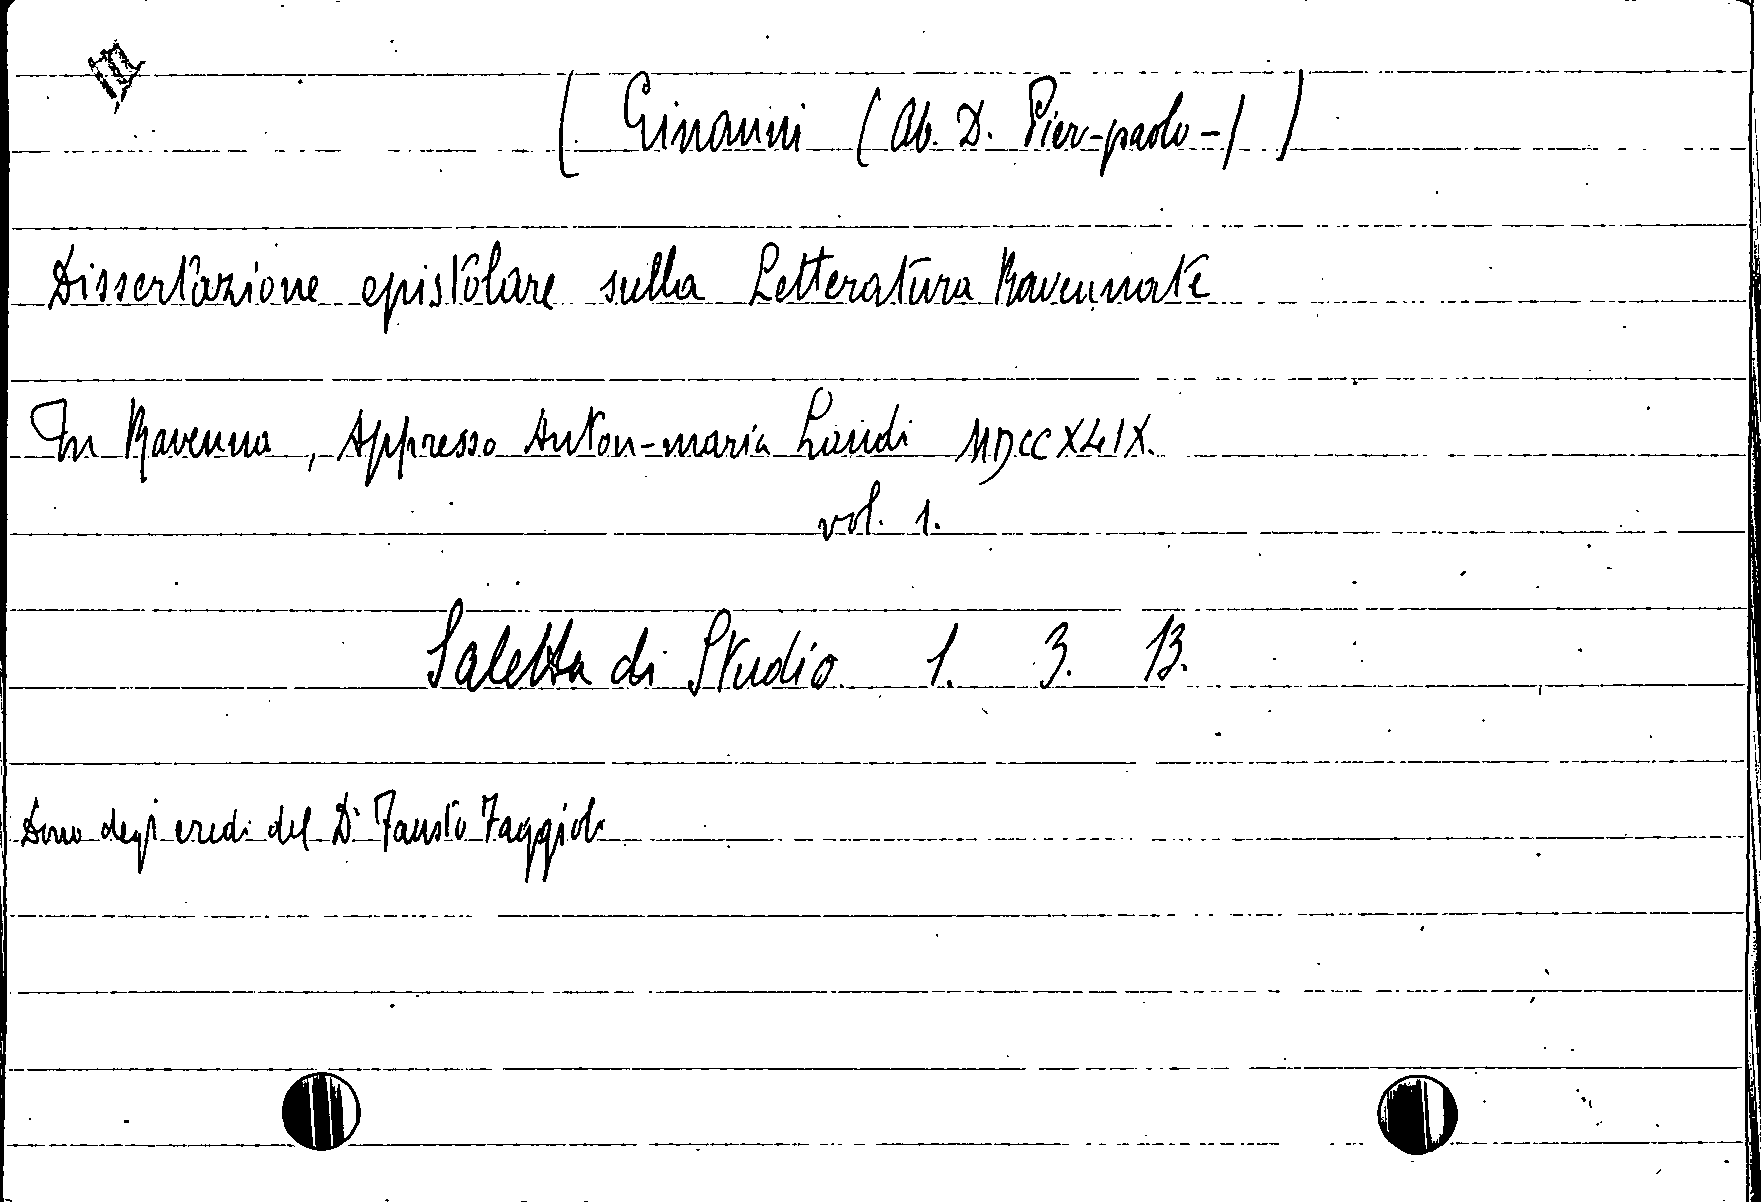 ( Ginanni ( Ab. D. Pier-paolo - ) )
Dissertazione epistolare sulla Letteratura Ravennate
In Ravenna, Appresso Anton-maria Landi MDCCXLIX.
vol. 1.
Saletta di Studio 1. 3. 13.
Dono degl eredi del D. Fausto Faggioli